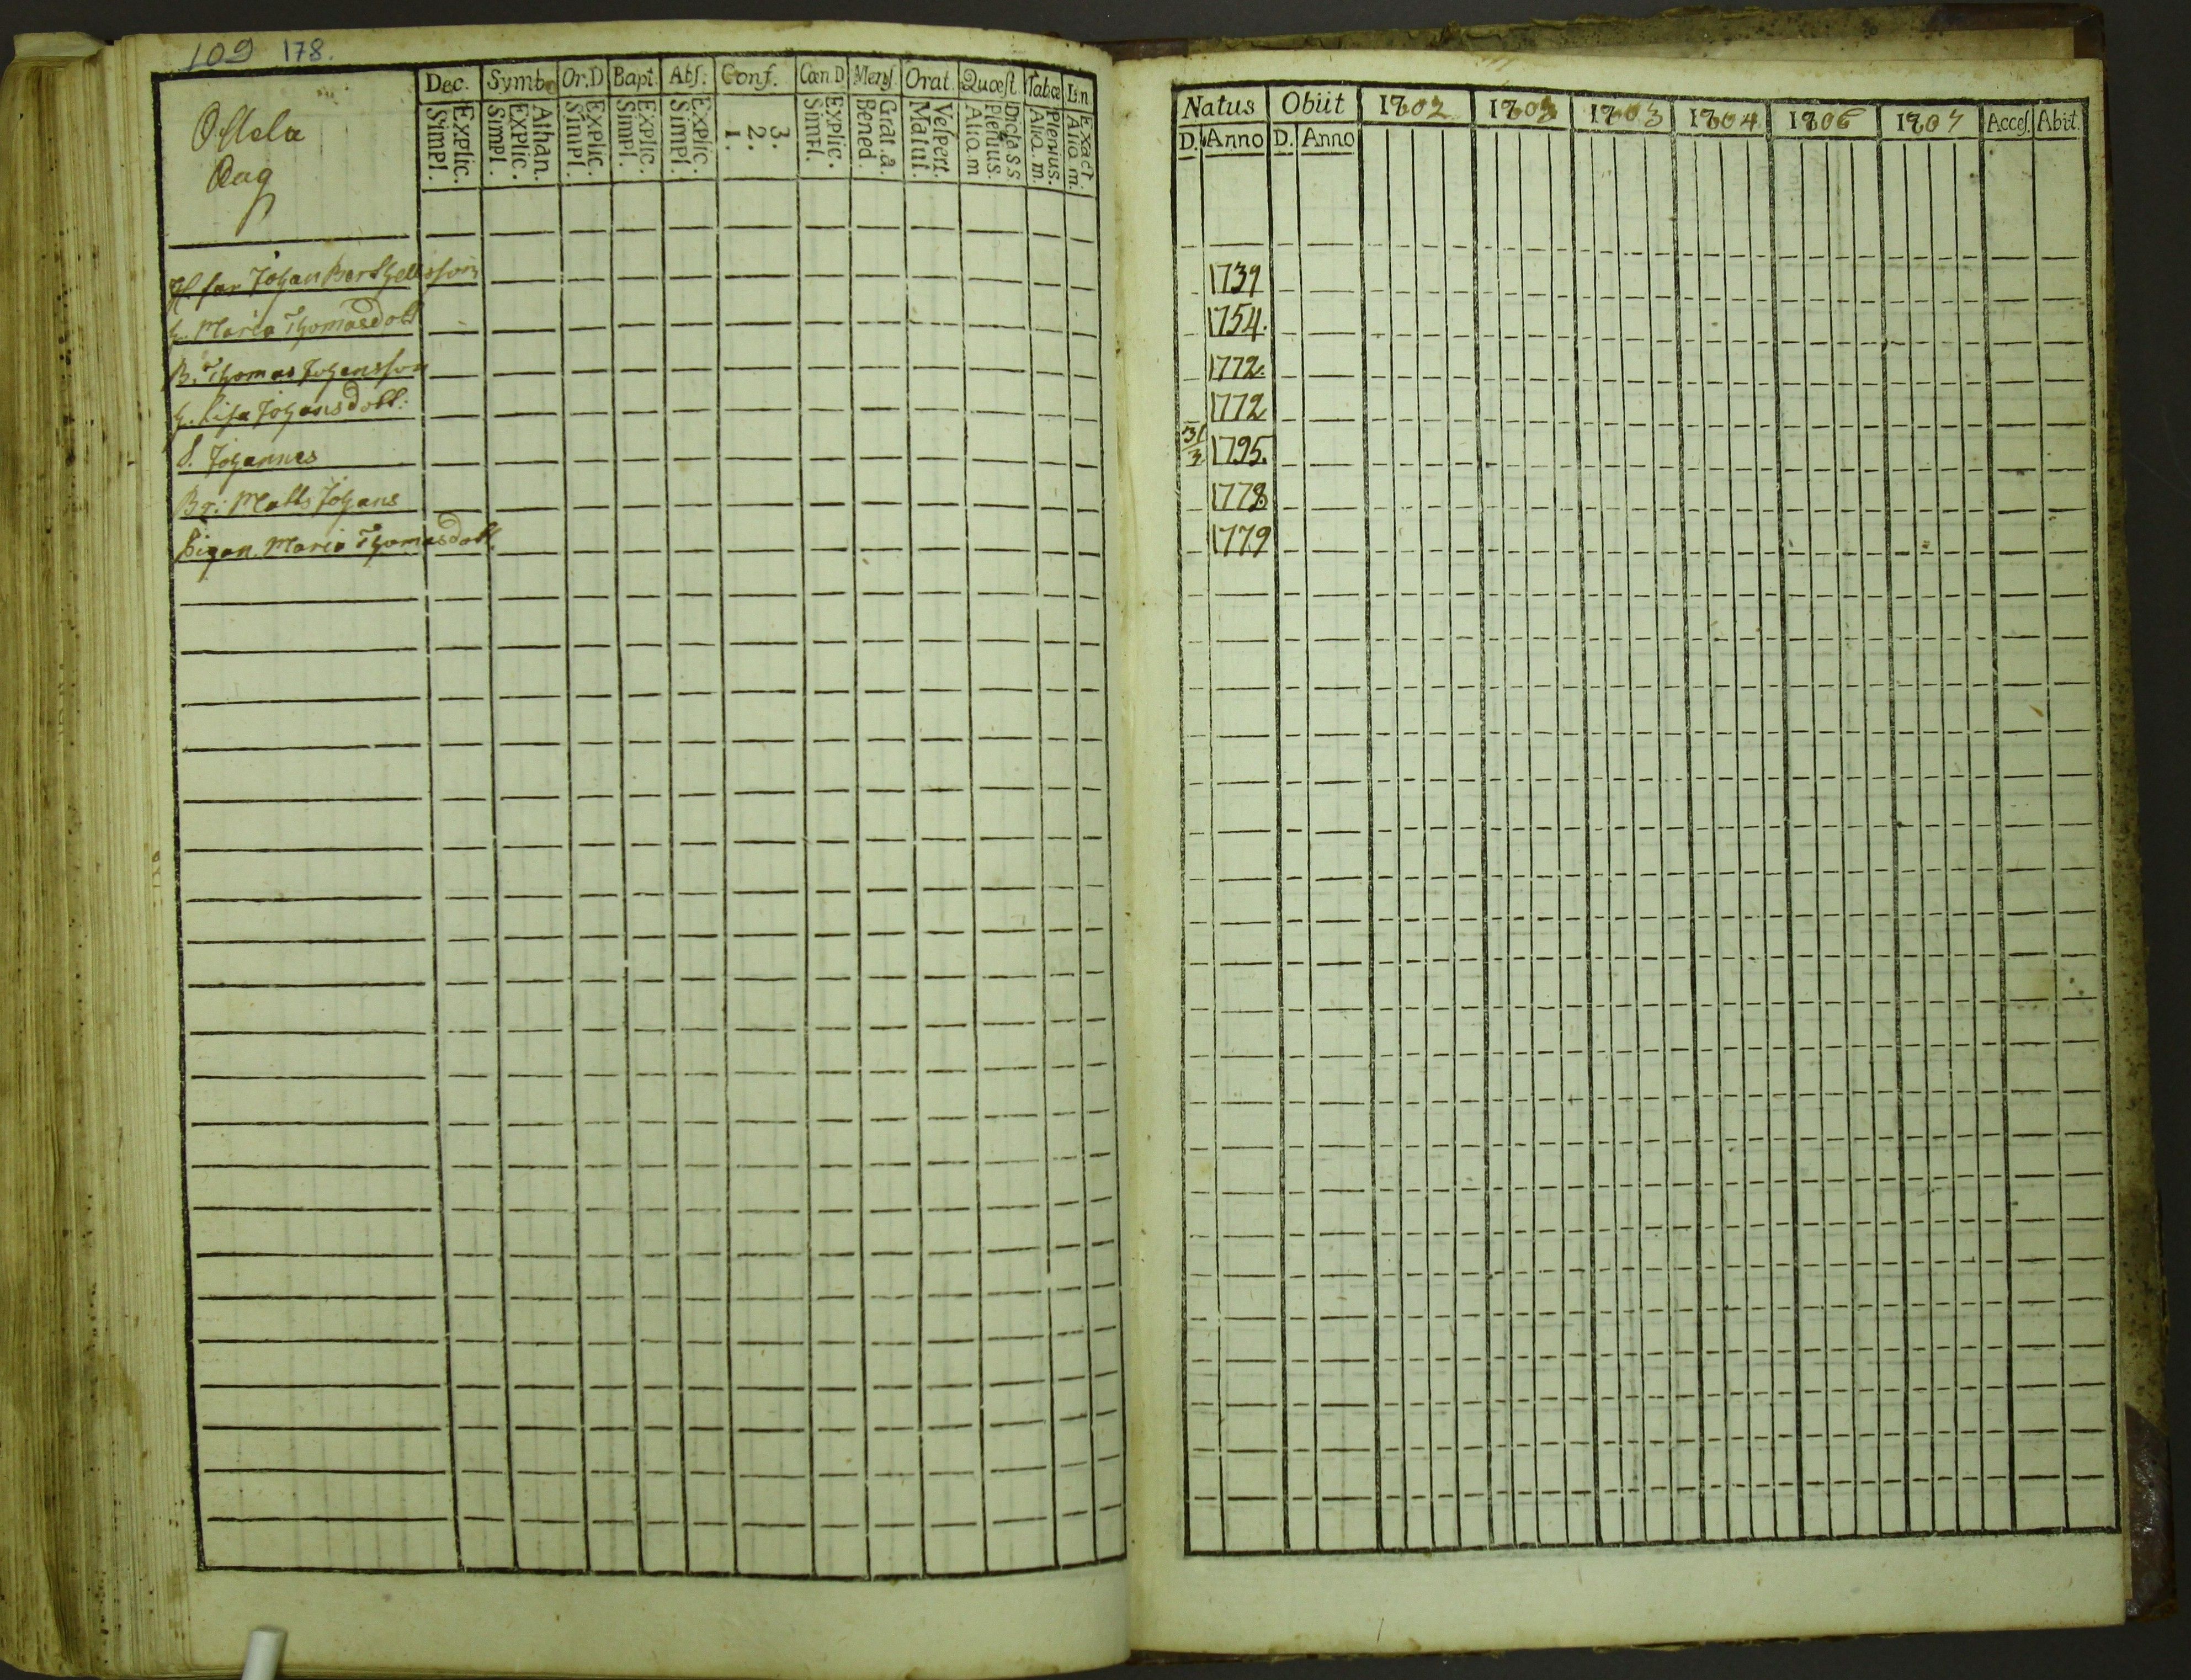 109 178.
Dec. Symb. Or.D Bapt. Abs: Conf. Cœn.D Mens Orat. Quœst Tabœ Lin.
Explic. Simpl. Athan. Explic. Simpl. Explic. Simpl. Explic. Simpl. Explic. Simpl. 3. 2. 1. Explic. Simpl. Grat.a. Bened. Vespert. Matut. Dicta SS Plenius. Alia.m Plenius. Alia.m. Exact. Alia m.
Natus Obiit 1802 1803 1803 1804 1806 1807 Acces. Abit.
D. Anno D. Anno
H. far Johan Berthellsson 1739
h. Maria Thomasdott 1754.
B. Thomas Johansson 1772.
h. Lisa Johansdott: 1772
S. Johannes 31/3 1795.
Br: Matts Johans 1778
Pigan Maria Thomasdott. 1779